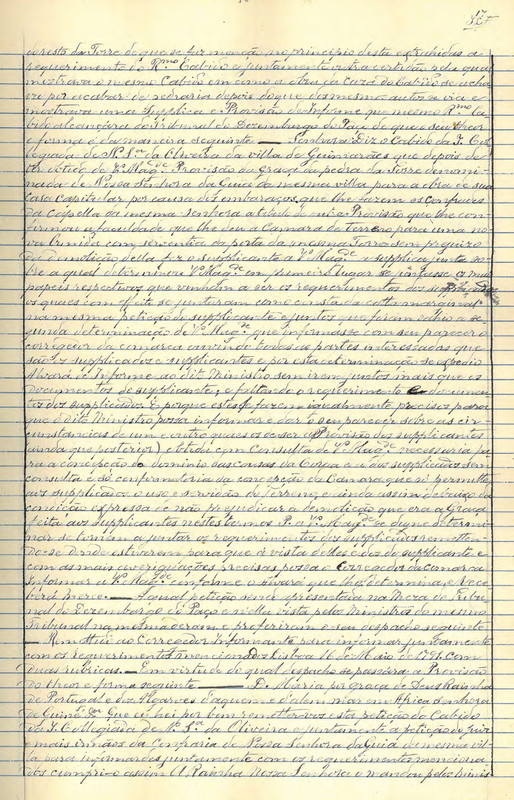 do resto da Torre de que se faz menção no principio desta extrahidas a
requerimento do R.mo Cabido e juntamente outra certidão pela qual
mostrava o mesmo Cabido em como a obra da caza do Cabido se acha-
va por acabar de pedraria depois do que dos mesmos autos se via e
mostrava uma supplica e Provisão de Informe que mesmo R.mo Ca-
bido alcançára do Tribunal do Dezembargo do Paço de que o seu theor
e forma é da maneira seguinte — Senhora Diz o Cabido da I. Col-
legiada de N. S.ra da Oliveira da villa de Guimarães que depois de
ter obtido de V. Mag.de Provisão da graça da pedra da Torre denomi-
nada de Nossa Senhora da Guia da mesma villa para a obra de sua
Casa capitular por causa dos embaraços que lhe fazem os confrades
da Capella da mesma senhora a titulo de uma Provisão que lhe con-
firmou a faculdade que lhe deu a Camara do Terreno para uma no-
va Ermida com serventia da porta da mesma Torre sem prejuizo
da demolição della fez o supplicante a V. Mag.de a supplica junta so-
bre a qual determinou V. Mag.de em primeiro lugar se juntassem os mais
papeis respectivos que vinham a ser os requerimentos dos
os quaes com effeito se juntaram como consta da cotta marginal
na mesma petição do supplicante e juntos que foram sahio a se-
gunda determinação de V. Mag.de que informasse com seu parecer o
corregedor da comarca ouvindo todas as partes interessadas que
são os supplicados e supplicantes e por esta determinação se expedio
Alvará de Informe ao dito Ministro sem irem juntos mais que os
Documentos do supplicante, e faltando o requerimento e documen-
tos dos supplicados. E porque estes se fazem igualmente precisos para
que o dito Ministro possa informar e dar o seu parecer sobre as cir-
cunstancias de um e outro quaes os de ser a Provisão dos supplicantes
ainda que posterior, obtida com Consulta de V. Mag.de necessaria pa-
ra a concepção do dominio das cousas da Coroa e a dos supplicados sem
consulta e só confirmatoria da concepção da Camara que só permitte
aos supplicados o uso e servidão do terreno, e ainda assim debaixo da
condição expressa de não prejudicar a demolição que era a Graça
feita aos supplicantes nestes termos P. a V. Mag.de se digne determi-
nar se tornem a juntar os requerimentos dos supplicados remetten-
do-se d'onde estiverem para que á vista delles e dos do supplicante e
com as mais averiguações precisas possa o Corregedor da comarca
Informar a V. Mag.de conforme o Alvará que lho determina, e rece-
berá merce. — A qual petição sendo apresentada na Meza do Tribu-
nal do Dezembargo do Paço e nella vista pelos Ministros do mesmo
Tribunal na mesma deram e proferiram o seu despacho seguinte
— Remettida ao Corregedor Informante para informar juntamente
com os requerimentos mencionados Lisboa 16 de Maio de 1791. Com
duas rubricas. — Em virtude do qual despacho se passára a Provisão
do theor e forma seguinte — D. Maria por graça de Deus Rainha
de Portugal e dos Algarves d'aquem e d'alem mar em Africa Senhora
de Guiné etc. Que eu hei por bem remetter-vos esta petição do Cabido
da I. Collegiada de N. S.ra da Oliveira e juntamente a petição do Juiz
e mais irmãos da Confraria de Nossa Senhora da Guia da mesma vil-
la para informardes juntamente com os requerimentos menciona-
dos cumpri-o assim A Rainha Nossa Senhora o mandou pelos Minis-